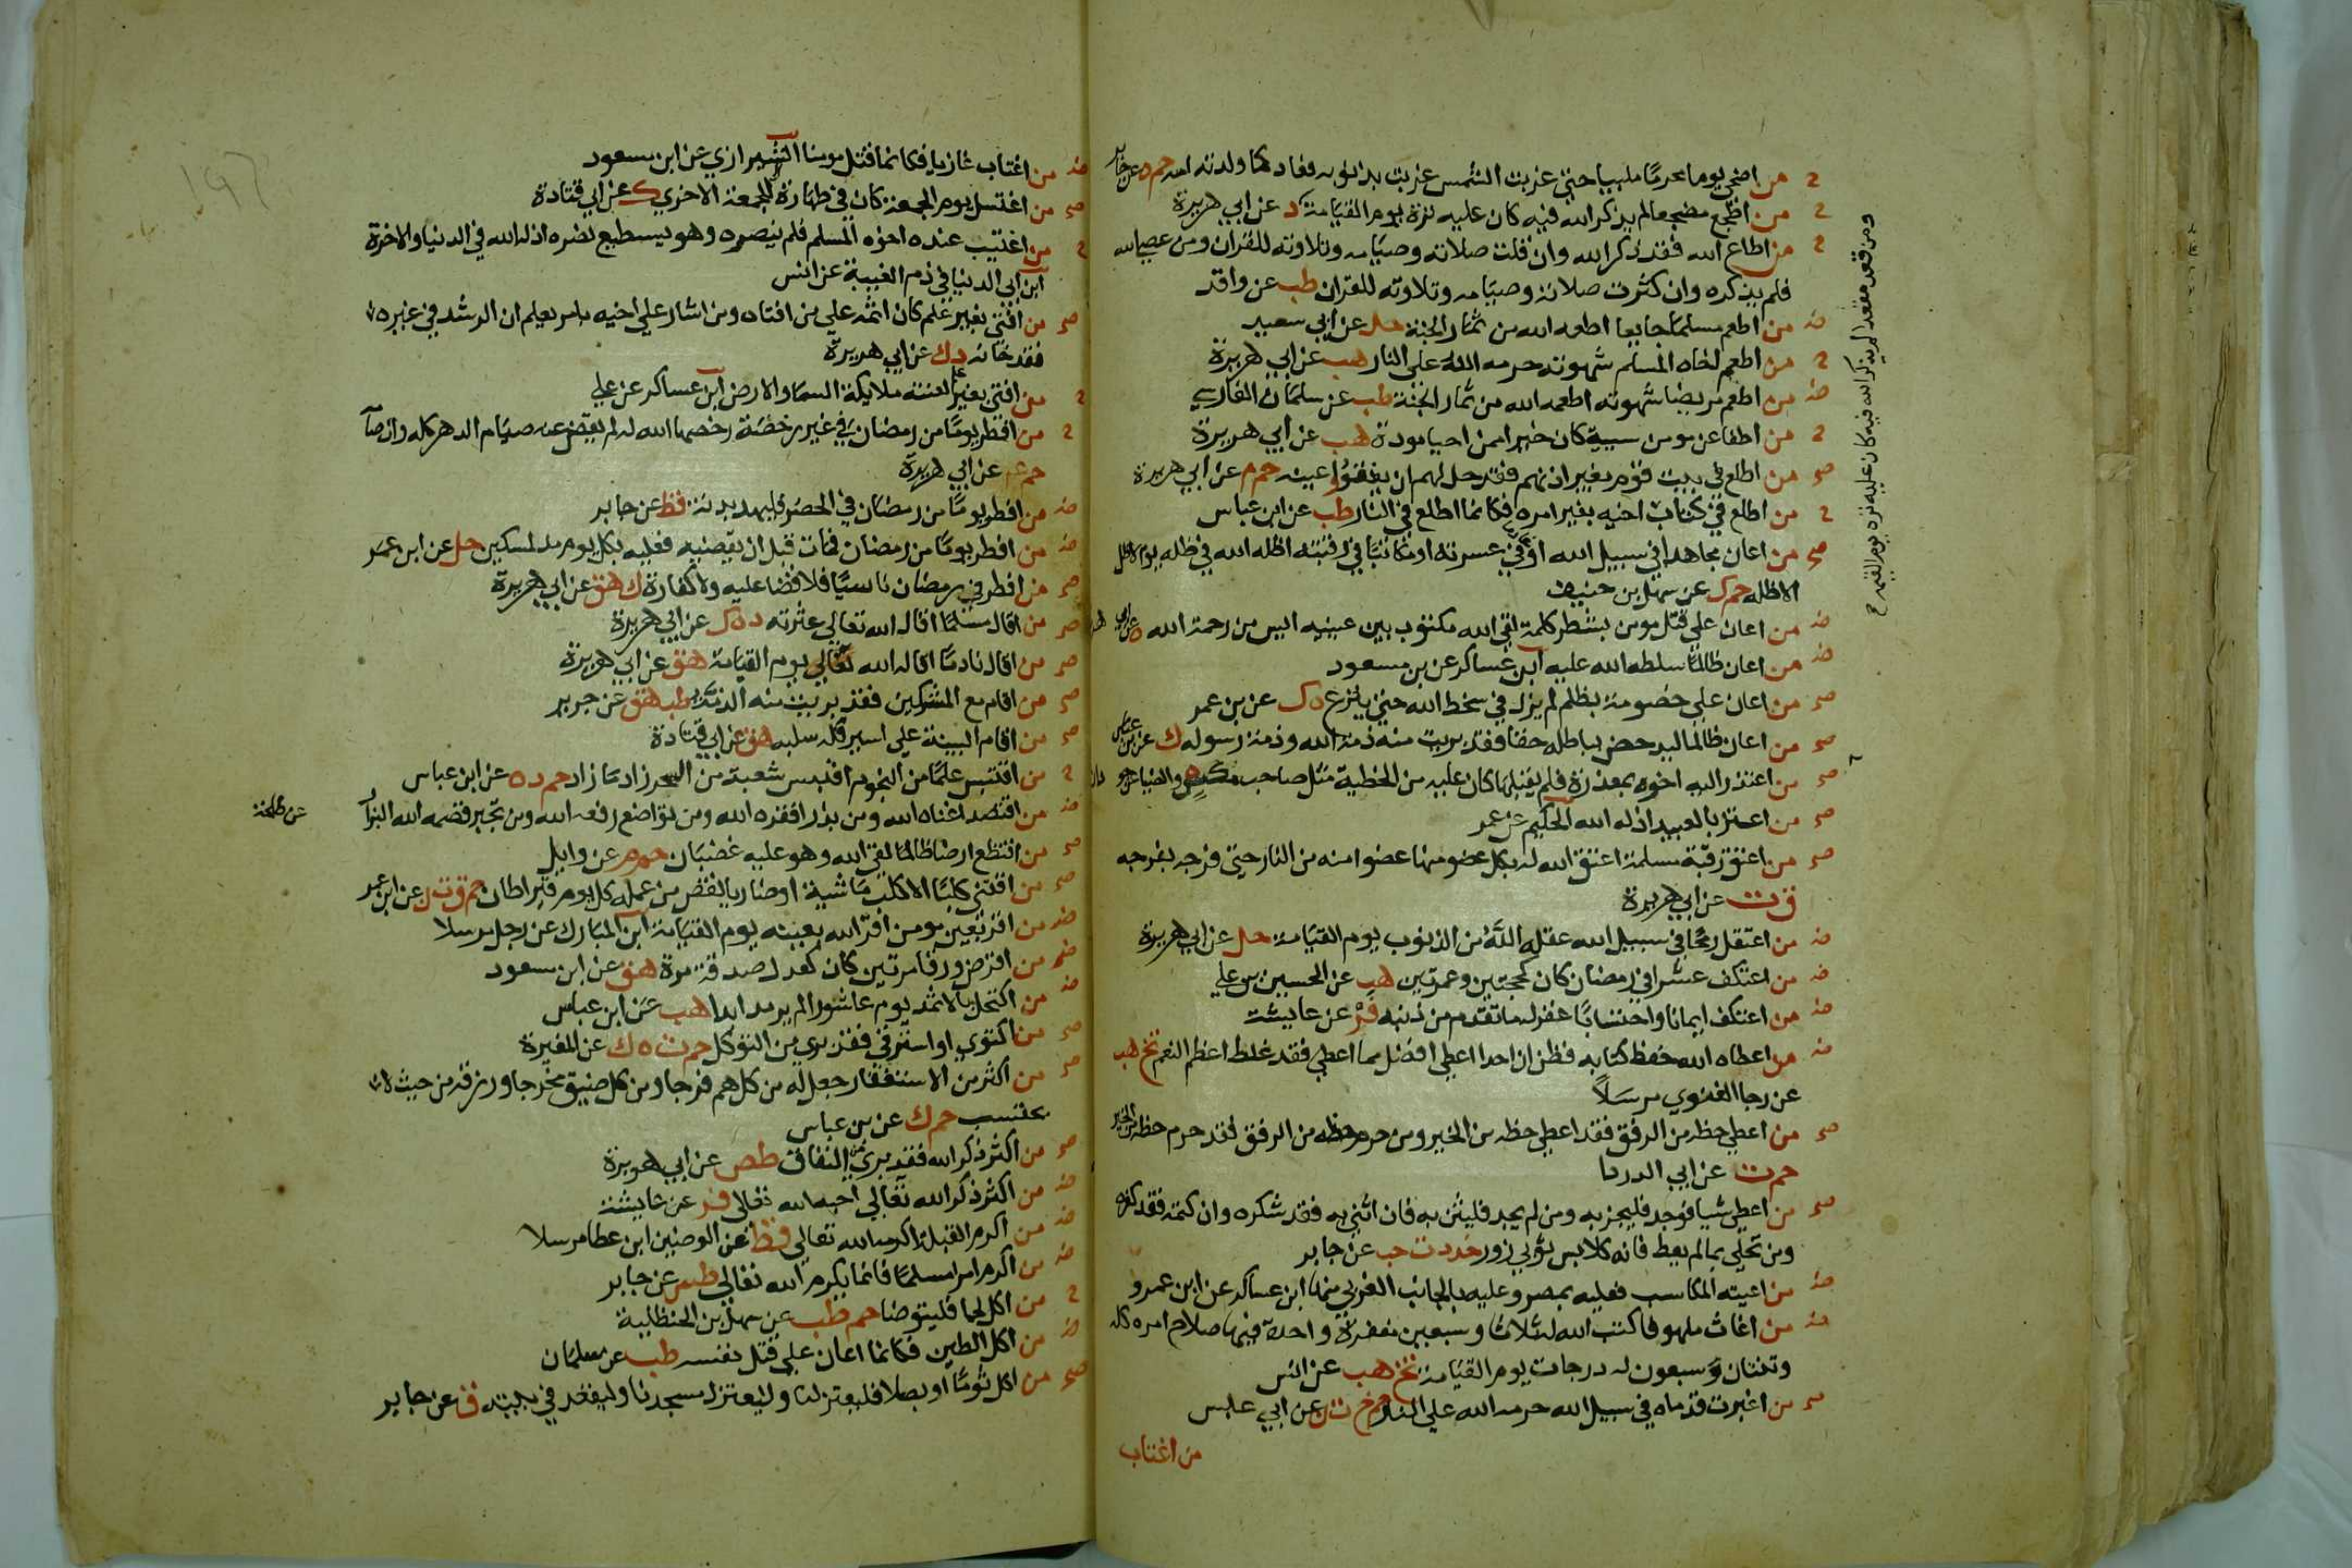 ح من اضحي يوما محرما ملبيا حتي غربت الشمس غربت بذنوبه فعاد كما ولدته امه حم ه عن جابر
ح من اضطجع مضجعا لم يذكر الله فيه كان عليه ترة يوم القيامة د عن ابي هريرة
ومن قعد مقعدا لم يذكر الله فيه كان عليه ترة يوم القيمة ح
ح من اطاع الله فقد ذكر الله وان قلت صلاته وصيامه وتلاوته للقران ومن عصي الله
فلم يذكره وان كثرت صلاته وصيامه وتلاوته للقران طب عن واقد
ض من اطعم مسلما جايعا اطعمه الله من ثمار الجنة حل عن ابي سعيد
ح من اطعم اخاه المسلم شهوته حرمه الله علي النار هب عن ابي هريرة
ض من اطعم مريضا شهوته اطعمه الله من ثمار الجنة طب عن سلمان الفارسي
ح من اطفا عن مومن سيية كان خيرا ممن احيا مودة هب عن ابي هريرة
صح من اطلع في بيت قوم بغير اذنهم فقد حل لهم ان يفقوا عينه حم م عن ابي هريرة
ح من اطلع في كتاب اخيه بغير امره فكانما اطلع في النار طب عن ابن عباس
صح من اعان مجاهدا في سبيل الله او في عسرته او مكاتبا في رقبته اظله الله في ظله يوم لا ظل
الا ظله حم ك عن سهل بن حنيف
ض من اعان علي قتل مومن بشطر كلمة لقي الله مكتوب بين عينيه ايس من رحمة الله ه عن ابي
ض من اعان ظالما سلطه الله عليه ابن عساكر عن بن مسعود
صح من اعان علي خصومة بظلم لم يزل في سخط الله حتي ينزع ه ك عن بن عمر
صح من اعان ظالما ليدحض بباطله حقا فقد بريت منه ذمة الله وذمة رسوله ك عن بن عباس
صح من اعتذر اليه اخوه بمعذرة فلم يقبلها كان عليه من الخطية مثل صاحب مكس ه والضيا عن
صح من اعتز بالعبيد اذله الله الحكيم عن عمر
صح من اعتق رقبة مسلمة اعتق الله له بكل عضو منها عضوا منه من النار حتي فرجه بفرجه
ق ت عن ابي هريرة
ض من اعتقل رمحا في سبيل الله عقله الله من الذنوب يوم القيامة حل عن ابي هريرة
ض من اعتكف عشرا في رمضان كان كحجتين وعمرتين هب عن الحسين بن علي
ض من اعتكف ايمانا واحتسابا غفر له ما تقدم من ذنبه فر عن عايشة
ض من اعطاه الله حفظ كتابه فظن ان احدا اعطي افضل مما اعطي فقد غلط اعظم النعم تخ هب
عن رجا الغنوي مرسلا
صح من اعطي حظه من الرفق فقد اعطي حظه من الخير ومن حرم حظه من الرفق فقد حرم حظه من الخير
حم ت عن ابي الدردا
صح من اعطي شيا فوجد فليجز به ومن لم يجد فليثن به فان اثني به فقد شكره وان كتمه فقد كفره
ومن تحلي بما لم يعط فانه كلابس ثوبي زور خد د ت حب عن جابر
ض من اعيته المكاسب فعليه بمصر وعليه بالجانب الغربي منها ابن عساكر عن ابن عمرو
ض من اغاث ملهوفا كتب الله له ثلاثا وسبعين مغفرة واحدة فيها صلاح امره كله
وثنتان وسبعون له درجات يوم القيامة تخ هب عن انس
صح من اغبرت قدماه في سبيل الله حرمه الله علي النار حم خ ت ن عن ابي عبس
من اغتاب
ض من اغتاب غازيا فكانما قتل مومنا الشيرازي عن ابن مسعود
صح من اغتسل يوم الجمعة كان في طهارة للجمعة الاخري ك عن ابي قتادة
ح من اغتيب عنده اخوه المسلم فلم ينصره وهو يسطيع نصره اذله الله في الدنيا والاخرة
ابن ابي الدنيا في ذم الغيبة عن انس
صح من افتي بغير علم كان اثمه علي من افتاه ومن اشار علي اخيه بامر يعلم ان الرشد في غيره
فقد خانه د ك عن ابي هريرة
ح من افتي بغير علم لعنته ملايكة السما والارض ابن عساكر عن علي
ح من افطر يوما من رمضان في غير رخصة رخصها الله له لم يقض عنه صيام الدهر كله وان صامه
حم عم عن ابي هريرة
ض من افطر يوما من رمضان في الحضر فليهد بدنة قط عن جابر
ض من افطر يوما من رمضان فمات قبل ان يقضيه فعليه بكل يوم مد لمسكين حل عن ابن عمر
صح من افطر في رمضان ناسيا فلا قضا عليه ولا كفارة ك هق عن ابي هريرة
صح من اقال مسلما اقال الله تعالي عثرته د ه ك عن ابي هريرة
صح من اقال نادما اقاله الله تعالي يوم القيامة هق عن ابي هريرة
صح من اقام مع المشركين فقد بريت منه الذمة طب هق عن جرير
صح من اقام البينة علي اسير فله سلبه هق عن ابي قتادة
ح من اقتبس علما من النجوم اقتبس شعبة من السحر زاد ما زاد حم د ه عن ابن عباس
ض من اقتصد اغناه الله ومن بذر افقره الله ومن تواضع رفعه الله ومن تجبر قصمه الله البزار عن طلحة
صح من اقتطع ارضا ظالما لقي الله وهو عليه غضبان حم م عن وايل
صح من اقتني كلبا الا كلب ماشية او ضاريا نقص من عمله كل يوم قيراطان حم ق ت ن عن ابن عمر
ض من اقر بعين مومن اقر الله بعينه يوم القيامة ابن المبارك عن رجل مرسلا
ض من اقرض ورقا مرتين كان كعدل صدقة مرة هق عن ابن مسعود
ض من اكتحل بالاثمد يوم عاشورا لم يرمد ابدا هب عن ابن عباس
صح من اكتوي او استرقي فقد بري من التوكل حم ت ه ك عن المغيرة
صح من اكثر من الاستغفار جعل له من كل هم فرجا ومن كل ضيق مخرجا ورزقه من حيث لا
يحتسب حم ك عن بن عباس
صح من اكثر ذكر الله فقد بري من النفاق طص عن ابي هريرة
ض من اكثر ذكر الله تعالي احبه الله تعالي فر عن عايشة
ض من اكرم القبلة اكرمه الله تعالي قط عن الوضين ابن عطا مرسلا
ض من اكرم امرا مسلما فانما يكرم الله تعالي طس عن جابر
ح من اكل لحما فليتوضا حم طب عن سهل بن الحنظلية
ض من اكل الطين فكانما اعان علي قتل نفسه طب عن سلمان
صح من اكل ثوما او بصلا فليعتزلنا وليعتزل مسجدنا وليقعد في بيته ق عن جابر